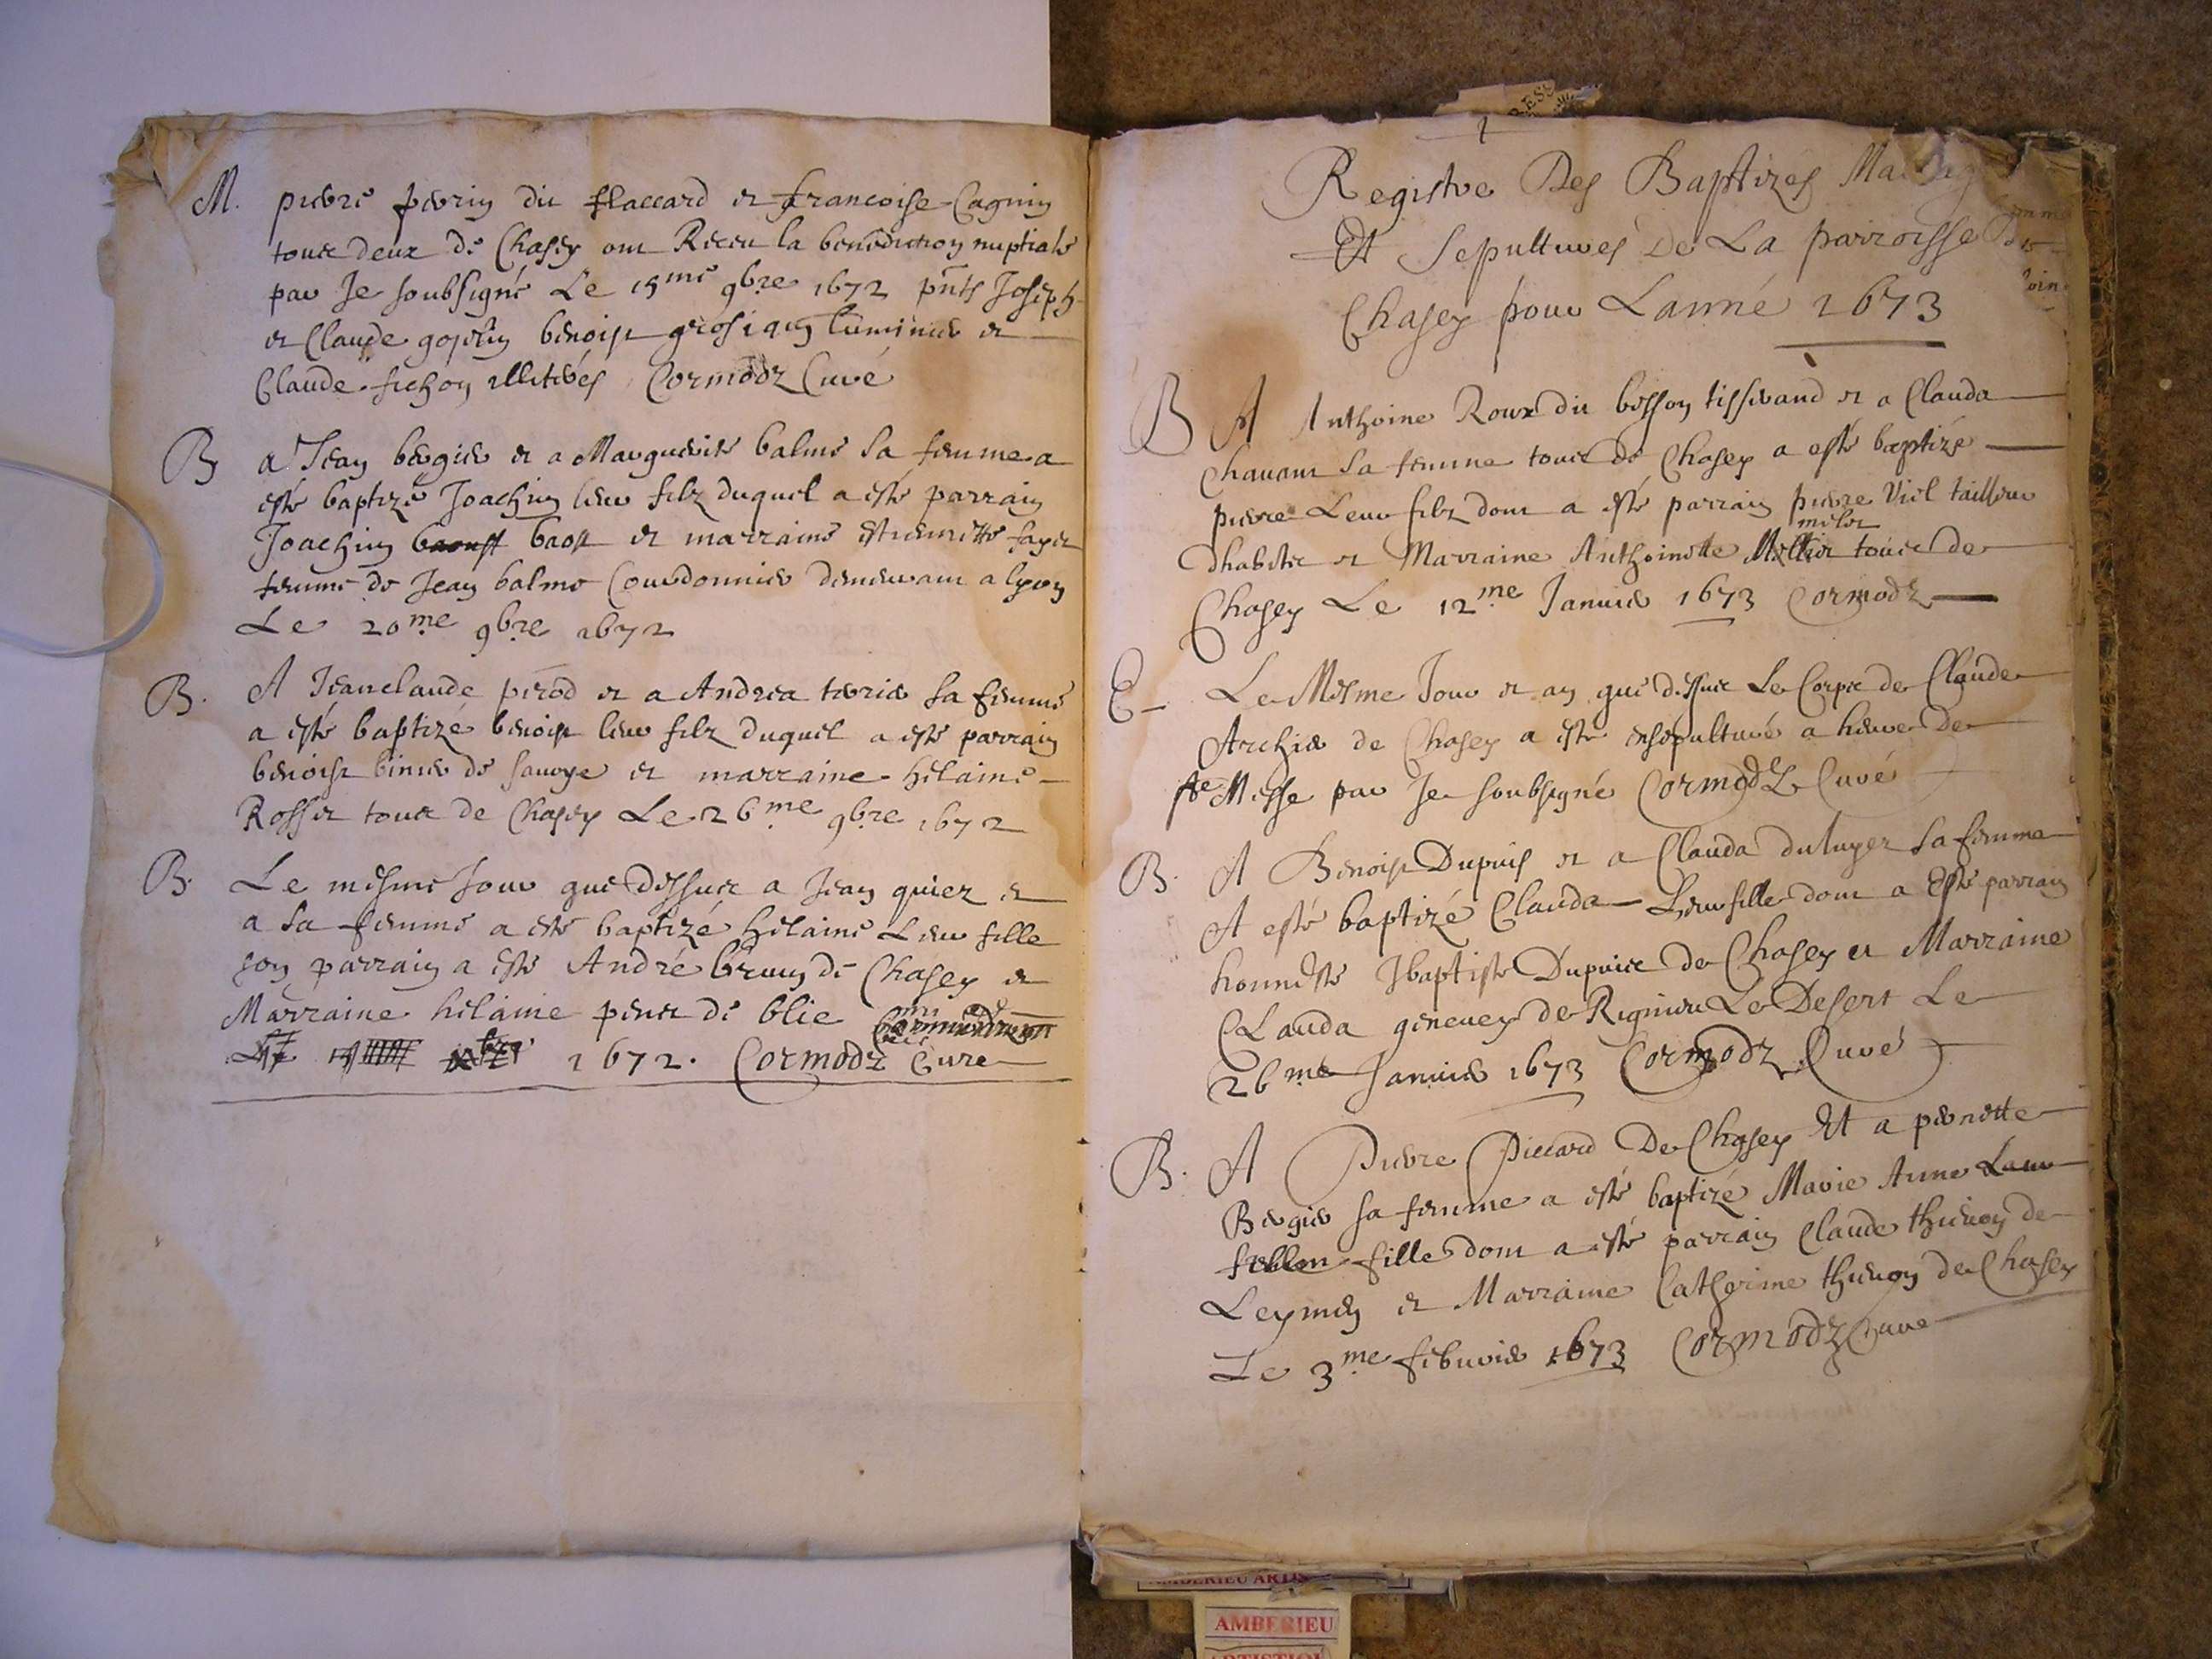 M. pierre perrin dit flaccard et francoise Cagnin
tous deux de Chasey ont Receu la benediction nuptiale
par Je soubsigné Le 15me 9bre 1672 pnts Joseph
et Claude goyetin benoist luminier et
Claude fichon illiterés Cormodz Curé
B a Jean bergier et a Marguerite balme sa femme a
esté baptizé Joachin leur filz duquel a esté parrain
Joachin baost et marraine estiennette fayet
femme de Jean balme Courdonnier demeurant a lyon
Le 20me 9bre 1672
B. A Jeanclaude pérod et a Andrea terrier sa femme
a esté baptizé benoist leur filz duquel a esté parrain
benoist binier de savoye et marraine hélaine
Rosset tous de Chasey Le 26me 9bre 1672
B. Le mesme Jour que dessus a Jean quiez et
a sa femme a esté baptizé hélaine Leur fille
son parrain a esté André brun de Chasey et
Marraine hélaine penet de blie
1672. Cormodz Cure
Registre Des Baptizés
Et Sepultures De La parroisse
Chasey pour Lanné 1673
B A Anthoine Roux dit besson tisserand et a Clauda
Chavant sa femme tous de Chasey a esté baptizé
pierre Leur filz dont a esté parrain pierre Viel tailleur
milet
dhabitz et Marraine Anthoinette tous de
Chasey Le 12me Janvier 1673 Cormodz
E Le Mesme Jour et an que dessus Le Corps de Claude
Archier de Chasey a esté ensépulturé a heure de
ste Messe par Je soubsigné Cormodz Curé
B. A Benoist Dupuis et a Clauda duluyez sa femme
A esté baptizé Clauda Leur fille dont a Esté parrain
honneste Jbaptiste Dupuis de Chasey et Marraine
Clauda genevey de Rignieu Le Desert Le
26me Janvier 1673 Cormodz Curé
B. A Pierre Piccard De Chasey Et a pernette
Bergier sa femme a esté baptizé Marie Anne Leur
fille dont a esté parrain Claude thevenon de
Leymen et Marraine Catherine thevenon de Chasey
Le 3me febvrier 1673 Cormodz Cure
AMBERIEU ARTIS
AMBERIEU